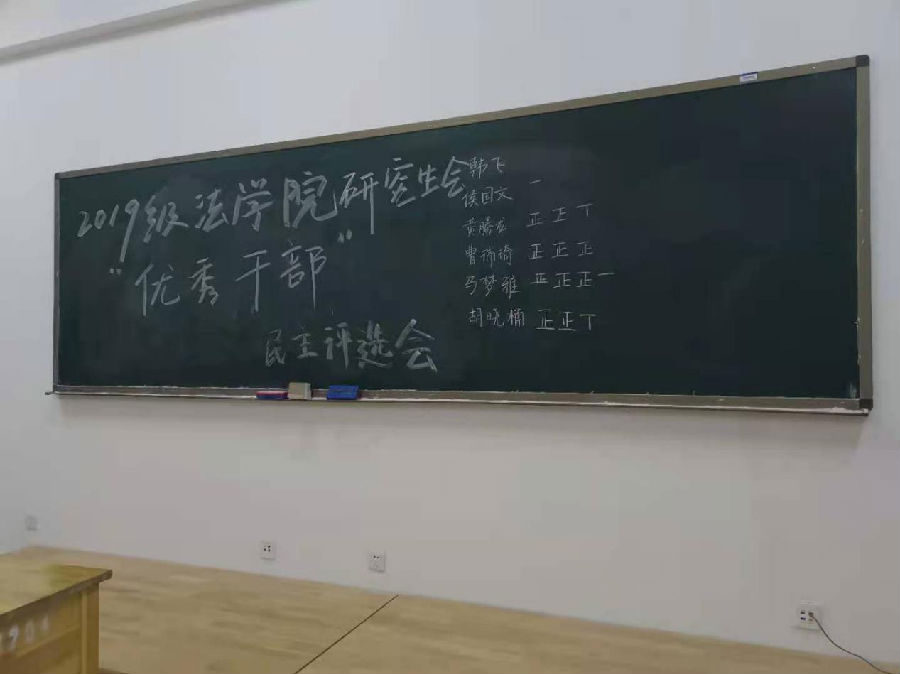 2019级法学院研究生会
"优秀干部"
民主评选会
韩飞
侯国文 一
黄腾龙 正正丅
曹 正正正
马梦雅 正正正一
胡晓楠 正正丅